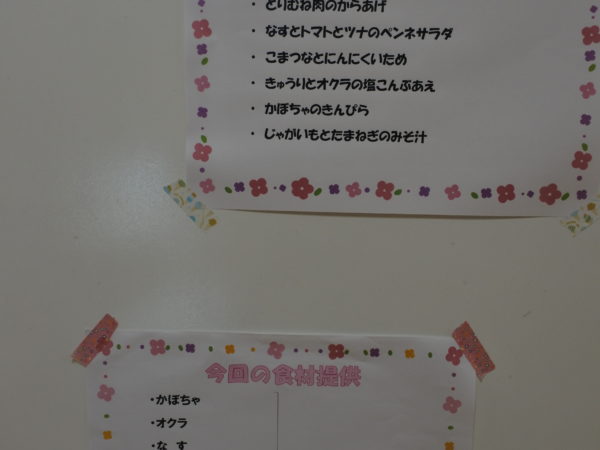 ・ とりむね肉のからあげ
・ なすとトマトとツナのペンネサラダ
・ こまつなとにんにくいため
・ きゅうりとオクラの塩こんぶあえ
・ かぼちゃのきんぴら
・ じゃがいもとたまねぎのみそ汁
今回の食材提供
・かぼちゃ
・オクラ
・な す